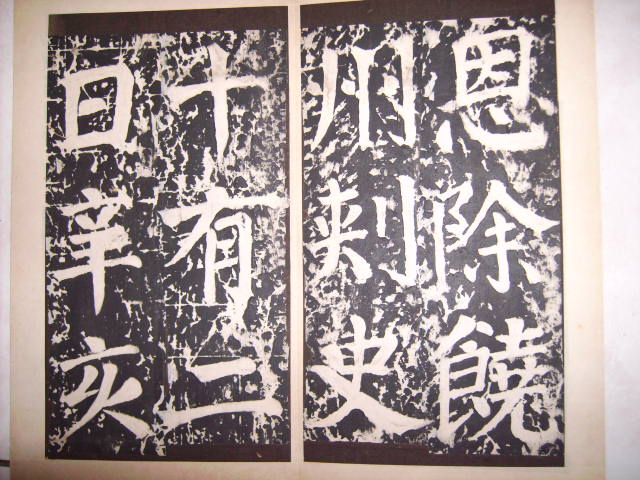 恩除饒
州刺史
十有二
日辛亥